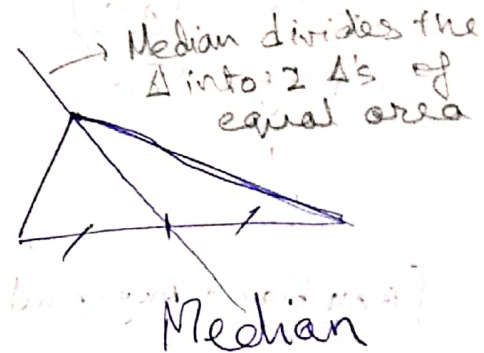 Median divides the
Δ into 2 Δ's of
equal area
Median